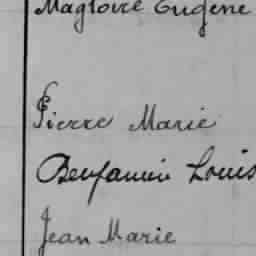 Magloire Eugène
Pierre Marie
Benjamin Louis
Jean Marie